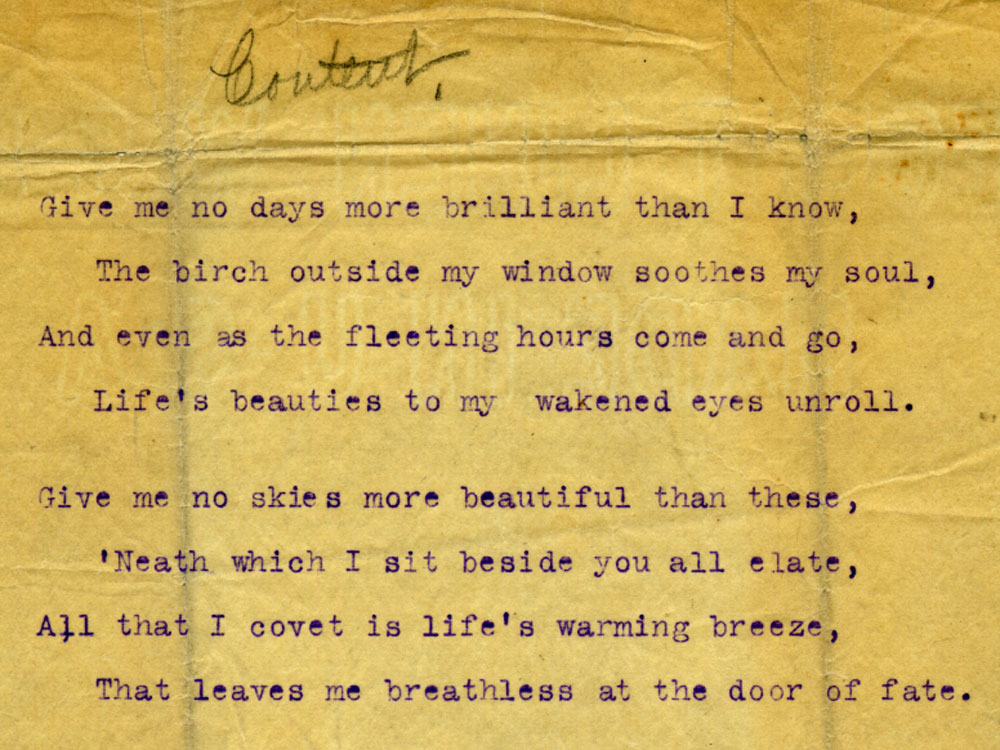 Content.
Give me no days more brilliant than I know,
The birch outside my window soothes my soul,
And even as the fleeting hours come and go,
Life's beauties to my wakened eyes unroll.
Give me no skies more beautiful than these,
'Neath which I sit beside you all elate,
All that I covet is life's warming breeze,
That leaves me breathless at the door of fate.